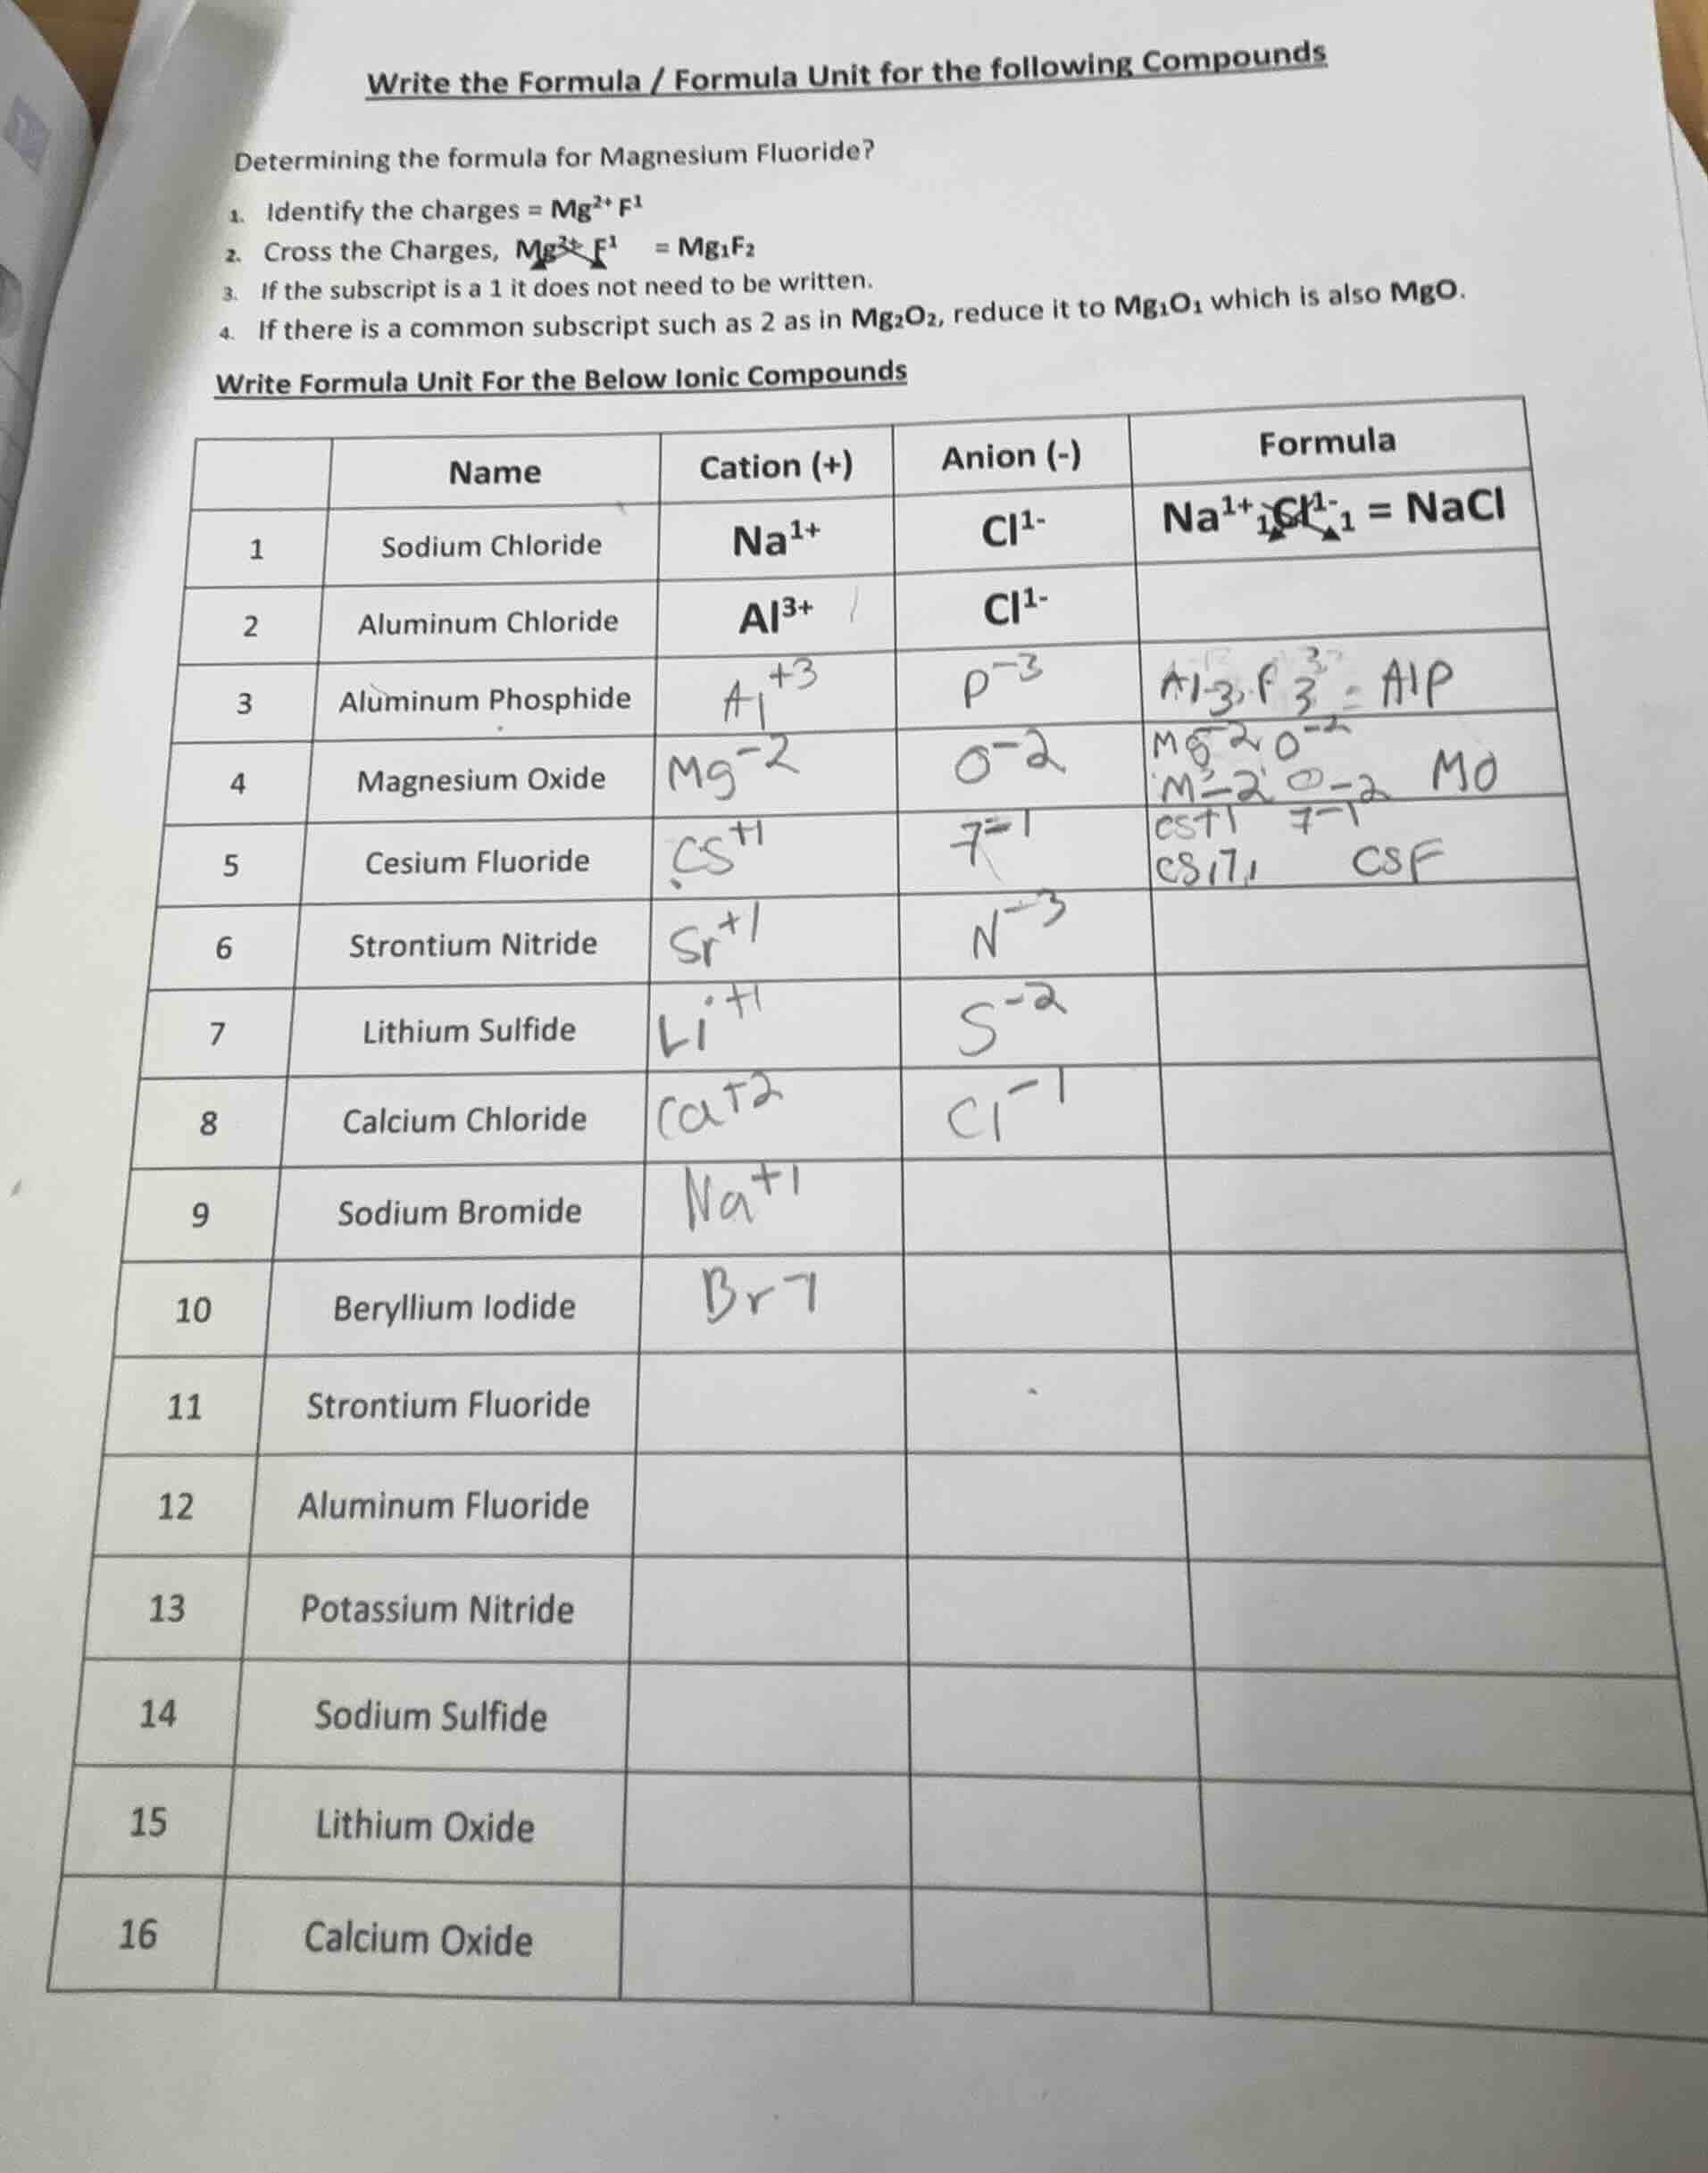 Write the Formula / Formula Unit for the following Compounds
Determining the formula for Magnesium Fluoride?
1. Identify the charges = Mg²⁺ F¹
2. Cross the Charges, Mg²⁺ F¹ = Mg₁F₂
3. If the subscript is a 1 it does not need to be written.
4. If there is a common subscript such as 2 as in Mg₂O₂, reduce it to Mg₁O₁ which is also MgO.
Write Formula Unit For the Below Ionic Compounds
Name Cation (+) Anion (-) Formula
1 Sodium Chloride Na¹⁺ Cl¹⁻ Na¹⁺₁Cl¹⁻₁ = NaCl
2 Aluminum Chloride Al³⁺ Cl¹⁻
3 Aluminum Phosphide Al⁺³ P⁻³ = AlP
4 Magnesium Oxide Mg⁻² O⁻² Mg⁻² O⁻²
M-2 O-2 MO
5 Cesium Fluoride Cs⁺¹ 7⁻¹ Cs+1 7-1
CS₁7₁ CSF
6 Strontium Nitride Sr⁺¹ N⁻³
7 Lithium Sulfide Li⁺¹ S⁻²
8 Calcium Chloride Ca⁺² Cl⁻¹
9 Sodium Bromide Na⁺¹
10 Beryllium Iodide Br
11 Strontium Fluoride
12 Aluminum Fluoride
13 Potassium Nitride
14 Sodium Sulfide
15 Lithium Oxide
16 Calcium Oxide